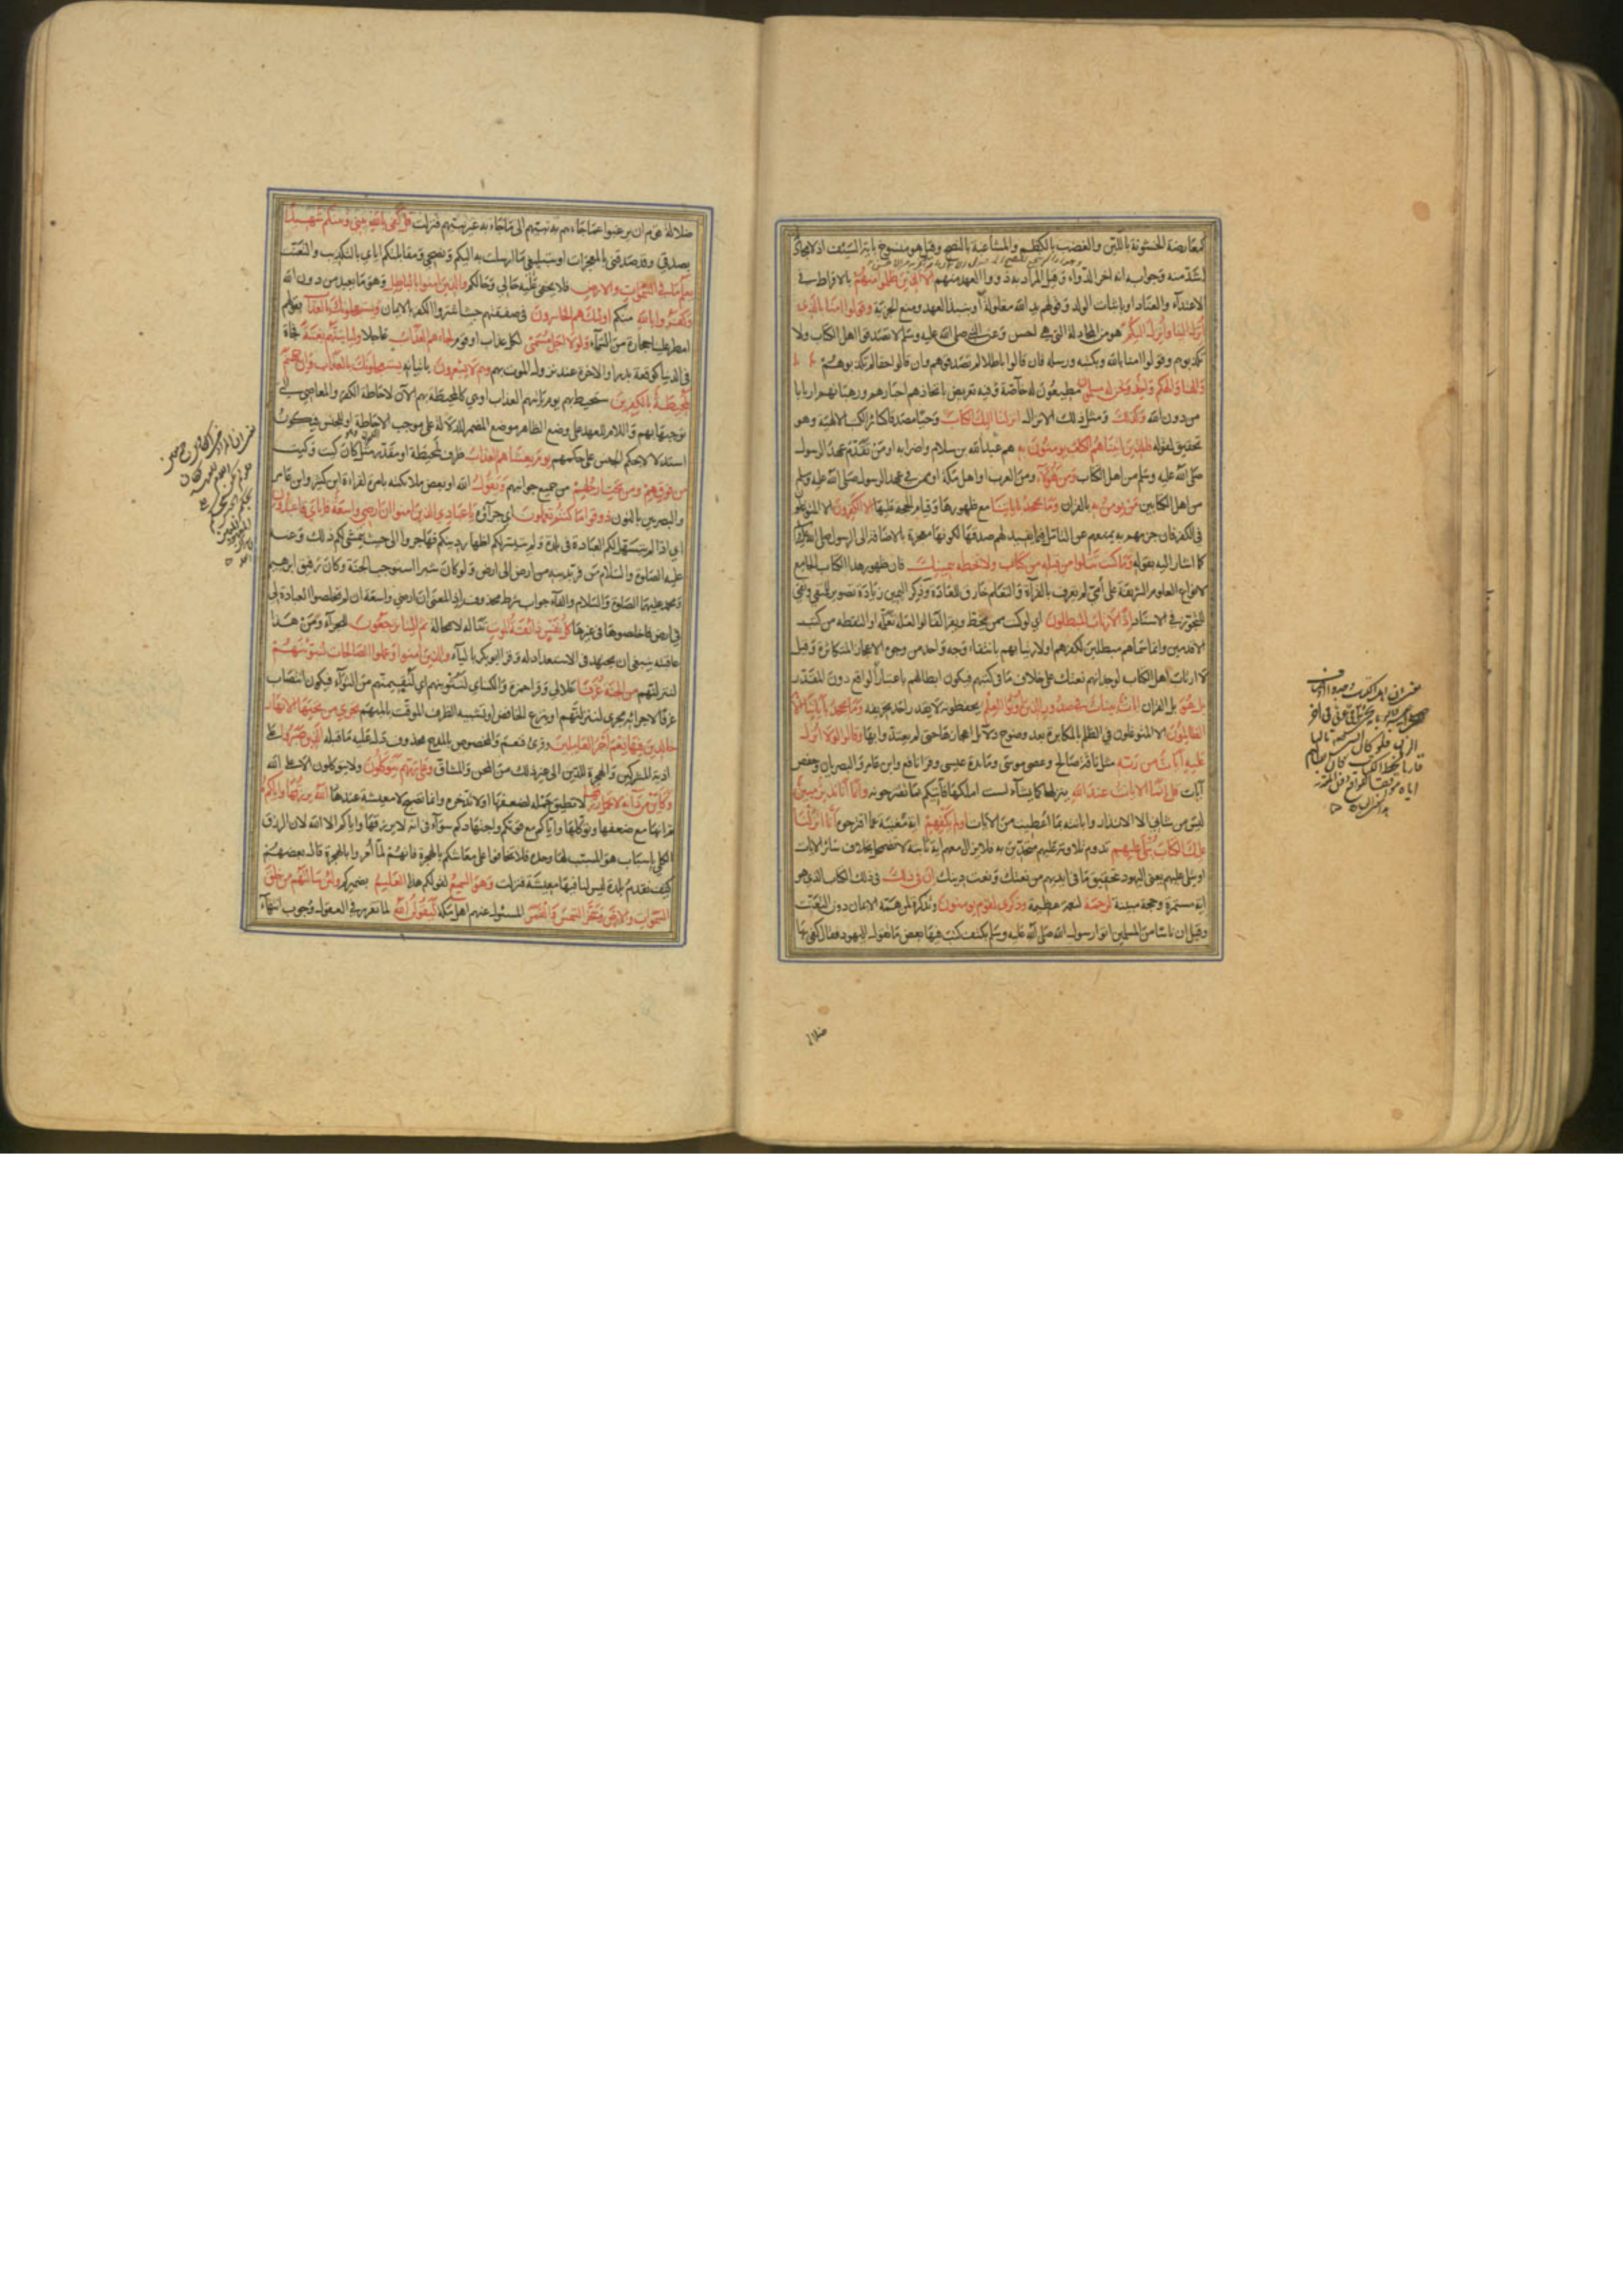 كمعارضة الخشونة باللين والغضب بالكظم والمشاغبة بالنصح وقيل هو منسوخ باية السيف اذ لا مجادلة
اشد منه وجوابه انه اخر الدواء وقيل المراد به ذووا العهد منهم الا الذين ظلموا منهم بالافراط في
الاعتداء والعناد او باثبات الولد وقولهم يد الله مغلولة او بنبذ العهد ومنع الجزية وقولوا امنا بالذي
انزل الينا وانزل اليكم هو من المجادلة التي هي احسن وعن النبي صلى الله عليه وسلم لا تصدقوا اهل الكتاب ولا
تكذبوهم وقولوا امنا بالله وبكتبه ورسله فان قالوا باطلا لم تصدقوهم وان قالوا حقا لم تكذبوهم
والهنا والهكم واحد ونحن له مسلمون مطيعون له خاصة وفيه تعريض باتخاذهم احبارهم ورهبانهم اربابا
من دون الله وكذلك ومثل ذلك الانزال انزلنا اليك الكتاب وحيا مصدقا لسائر الكتب الالهية وهو
تحقيق لقوله فالذين اتيناهم الكتاب يومنون به هم عبد الله بن سلام واضرابه او من تقدم عهد الرسول
صلى الله عليه وسلم من اهل الكتاب ومن هؤلاء ومن العرب او اهل مكة او ممن في عهد الرسول صلى الله عليه وسلم
من اهل الكتابين من يومن به بالقران وما يجحد باياتنا مع ظهورها وقيام الحجة عليها الا الكفرون الا المتوغلون
في الكفر فان جزمهم به يمنعهم عن التامل فيما يفيد لهم صدقها لكونها معجزة بالاضافة الى الرسول صلى الله عليه وسلم
كما اشار اليه بقوله وما كنت تتلوا من قبله من كتاب ولا تخطه بيمينك فان ظهور هذا الكتاب الجامع
لانواع العلوم الشريفة على امي لم يعرف بالقرآة والتعلم خارق للعادة وذكر اليمين زيادة تصوير للمنفي ونفي
للتجوز في الاسناد اذا لارتاب المبطلون اي لو كنت ممن يخط ويقرا لقالوا لعله تعلمه او التقطه من كتب
الاقدمين وانما سماهم مبطلين لكفرهم او لارتيابهم بانتفاء وجه واحد من وجوه الاعجاز المتكاثرة وقيل
لارتاب اهل الكتاب لوجدانهم نعتك على خلاف ما في كتبهم فيكون ابطالهم باعتبار الواقع دون المقدر
بل هو بل القران ايات بينات في صدور الذين اوتوا العلم يحفظونه لا يقدر احد تحريفه وما يجحد باياتنا الا
الظالمون الا المتوغلون في الظلم بالمكابرة بعد وضوح دلائل اعجازها حتى لم يعتدوا بها وقالوا لولا انزل
عليه آيات من ربه مثل ناقة صالح وعصى موسى ومائدة عيسى وقرا نافع وابن عامر والبصريان وحفص
آيات قل انما الايات عند الله ينزلها كما يشآء لست املكها فآتيكم بما تقترحونه وانما انا نذير مبين
ليس من شاني الا الانذار وابانته بما اعطيت من الايات اولم يكفهم اية مغنية عما اقترحوه انا انزلنا
عليك الكتاب يتلى عليهم تدوم تلاوته عليهم متحدين به فلا يزال معهم اية ثابتة لا تضمحل بخلاف سائر الايات
او يتلى عليهم يعني اليهود بتحقيق ما في ايديهم من نعتك ونعت دينك ان في ذلك في ذلك الكتاب الذي هو
اية مستمرة وحجة مبينة لرحمة لنعمة عظيمة وذكرى لقوم يومنون وتذكرة لمن همته الايمان دون التعنت
وقيل ان ناسا من المسلمين اتوا رسول الله صلى الله عليه وسلم بكتف كتب فيها بعض ما يقول اليهود فقال كفى بها
ضلالة
ضلالة قوم ان يرغبوا عما جاءهم به نبيهم الى ما جاء به غير نبيهم فنزلت قل كفى بالله بيني وبينكم شهيدا
بصدقي وقد صدقني بالمعجزات او بتبليغي ما ارسلت به اليكم ونصحي ومقابلتكم اياي بالتكذيب والتعنت
يعلم ما في السموات والارض فلا يخفى عليه حالي وحالكم والذين امنوا بالباطل وهو ما يعبد من دون الله
وكفروا بالله منكم اولئك هم الخاسرون في صفقتهم حيث اشتروا الكفر بالايمان ويستعجلونك بالعذاب بقولهم
امطر علينا حجارة من السمآء ولولا اجل مسمى لكل عذاب او قوم لجاءهم العذاب عاجلا ولياتينهم بغتة فجاة
في الدنيا كوقعة بدر او الاخرة عند نزول الموت بهم وهم لا يشعرون باتيانه يستعجلونك بالعذاب وان جهنم
لمحيطة بالكفرين ستحيط بهم يوم ياتيهم العذاب او هي كالمحيطة بهم الآن لاحاطة الكفر والمعاصي التي
توجبها بهم واللام للعهد على وضع الظاهر موضع المضمر للدلالة على موجب الاحاطة او للجنس فيكون
استدلالا بحكم الجنس على حكمهم يوم يغشاهم العذاب ظرف لمحيطة او مقدر مثل كان كيت وكيت
من فوقهم ومن تحت ارجلهم من جميع جوانبهم ونقول الله او بعض ملائكته بامره لقراءة ابن كثير وابن عامر
والبصريين بالنون ذوقوا ما كنتم تعملون اي جزآؤه يا عبادي الذين امنوا ان ارضي واسعة فاياي فاعبدون
اي اذا لم يتسهل لكم العبادة في بلدة ولم يتيسر لكم اظهار دينكم فهاجروا الى حيث يتمشى لكم ذلك وعنه
عليه الصلوة والسلام من فر بدينه من ارض الى ارض ولو كان شبرا استوجب الجنة وكان رفيق ابرهيم
ومحمد عليهما الصلوة والسلام والفآء جواب شرط محذوف اذ المعنى ان ارضي واسعة ان لم تخلصوا العبادة لي
في ارض فاخلصوها في غيرها كل نفس ذائقة الموت تناله لا محالة ثم الينا ترجعون للجزآء ومن هذا
عاقبته ينبغي ان يجتهد في الاستعداد له وقرا ابو بكر باليآء والذين امنوا وعملوا الصالحات لنبوئنهم
لننزلنهم من الجنة غرفا علالي وقرا حمزة والكساي لنثوينهم اي لنقيمنهم من الثوآء فيكون انتصاب
غرفا لاجرائه مجرى لننزلنهم او بنزع الخافض او تشبيه الظرف الموقت بالمبهم تجري من تحتها الانهار
خالدين فيها نعم اجر العاملين وقرئ فنعم والمخصوص بالمدح محذوف دل عليه ما قبله الذين صبروا على
اذية المشركين والهجرة للدين الى غير ذلك من المحن والمشاق وعلى ربهم يتوكلون ولا يتوكلون الا على الله
وكاين من دآبة لا تحمل رزقها لا تطيق حمله لضعفها او لا تدخره وانما تصبح لا معيشة عندها الله يرزقها واياكم
ثم انها مع ضعفها وتوكلها واياكم مع قوتكم واجتهادكم سوآء في انه لا يرزقها واياكم الا الله لان رزق
الكل باسباب هو المسبب لها وحده فلا تخافوا على معاشكم بالهجرة فانهم لما امروا بالهجرة قال بعضهم
كيف نقدم بلدة ليس لنا فيها معيشة فنزلت وهو السميع لقولكم هذا العليم بضميركم ولئن سالتهم من خلق
السموات والارض وسخر الشمس والقمر المسئول عنهم اهل مكة ليقولن الله لما تقرر في العقول وجوب انتهآء